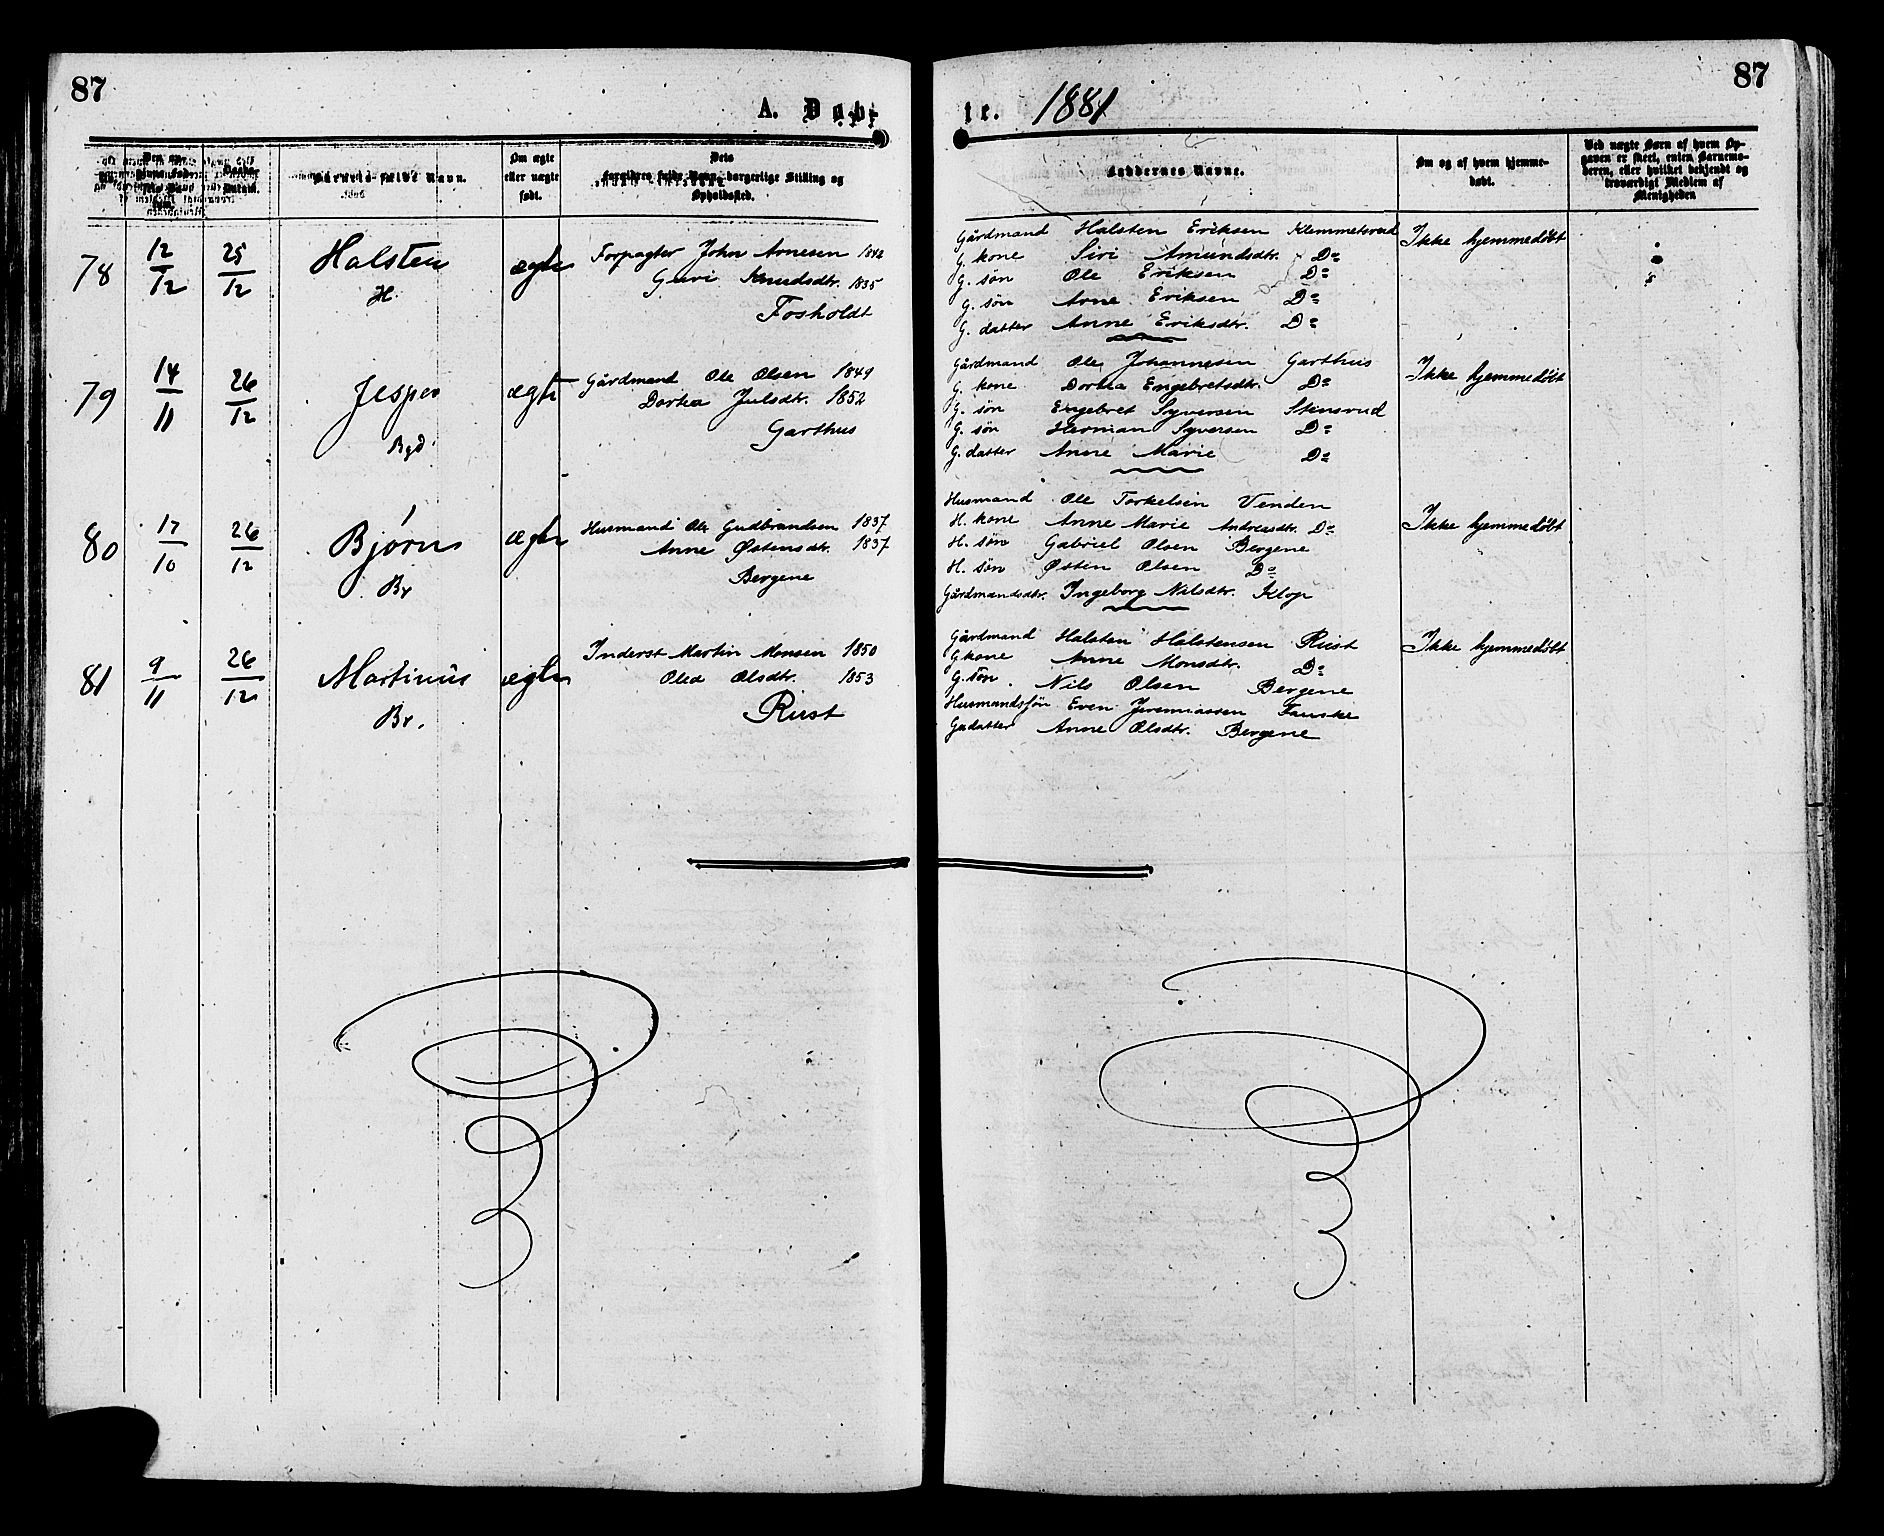 87
87
A. Døbte. 1881
Barnets fulde Navn.
Om ægte eller uægte født.
Dets Forældres fulde Navn, borgerlige Stilling og Opholdssted.
Faddernes Navne.
Om og af hvem hjemmedøbt.
Ved uægte Børn af hvem Opgaven er skeet, enten Barnemoderen, eller hvilket bekjendt og troværdigt Medlem af Menigheden
78 12/12 25/12 Halsten ægte
H
Forpagter John Arnesen 1842
Guri Knudsdtr. 1835
Fosholdt
Gårdmand Halsten Eriksen Klemmetsrud
G. kone Siri Amundsdtr. Do
G. søn Ole Eriksen Do
G. søn Arne Eriksen Do
G. datter Anne Eriksdtr. Do
Ikke hjemmedøbt
79 14/11 26/12 Jesper ægte
Bgd
Gårdmand Ole Olsen 1849
Dorthea Julsdtr. 1852
Garthus
Gårdmand Ole Johannesen Garthus
G. kone Dorthea Engebretsdtr. Do
G. søn Engebret Syversen Stensrud
G. søn Herman Syversen Do
G. datter Anne Marie Do
Ikke hjemmedøbt
80 17/10 26/12 Bjørn ægte
Br
Husmand Ole Gudbrandsen 1837
Anne Østensdtr. 1837
Bergene
Husmand Ole Torkelsen Venden
H. kone Anne Marie Andreasdtr. Do
H. søn Gabriel Olsen Bergene
H. søn Østen Olsen Do
Gårdmandsdtr. Ingeborg Nilsdtr. Klop
Ikke hjemmedøbt
81 9/11 26/12 Martinus ægte
Br.
Inderst Martin Monsen 1850
Olea Olsdtr. 1853
Rust
Gårdmand Halsten Halstensen Rust
G kone Anne Monsdtr. Do
G. søn Nils Olsen Bergene
Husmandssøn Even Jeremiassen Fauske
Gadatter Anne Olsdtr. Bergene
Ikke hjemmedøbt